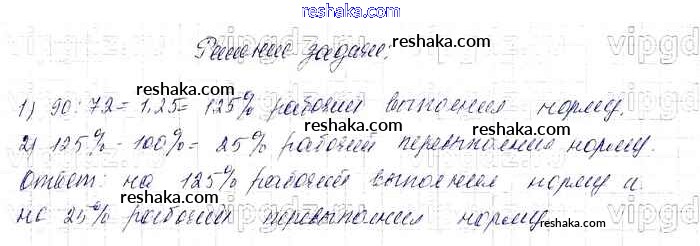 reshaka.com
Решение задачи:
reshaka.com
reshaka.com
1) 90:72=1,25=125% рабочий выполнил норму.
reshaka.com
2) 125%-100%=25% рабочий перевыполнил норму.
reshaka.com
Ответ: на 125% рабочий выполнил норму и
на 25% рабочий перевыполнил норму
reshaka.com
reshaka.com